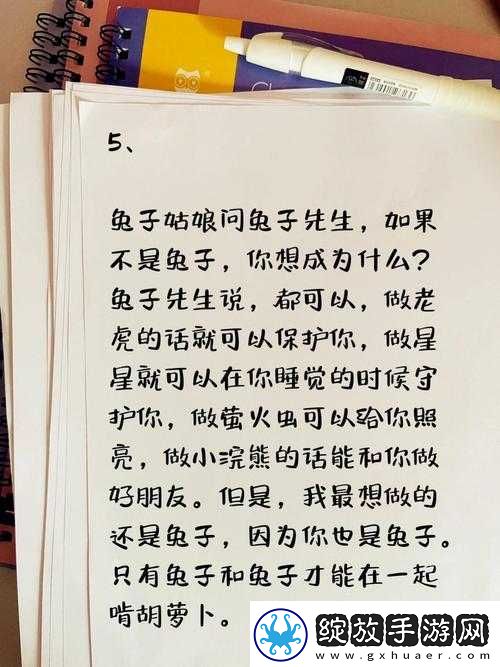 5、
兔子姑娘问兔子先生，如果
不是兔子，你想成为什么？
兔子先生说，都可以，做老
虎的话就可以保护你，做星
星就可以在你睡觉的时候守
护你，做萤火虫可以给你照
亮，做小浣熊的话能和你做
好朋友。但是，我最想做的
还是兔子，因为你也是兔子。
只有兔子和兔子才能在一起
啃胡萝卜。
绽放手游网
www.gxhuaer.com